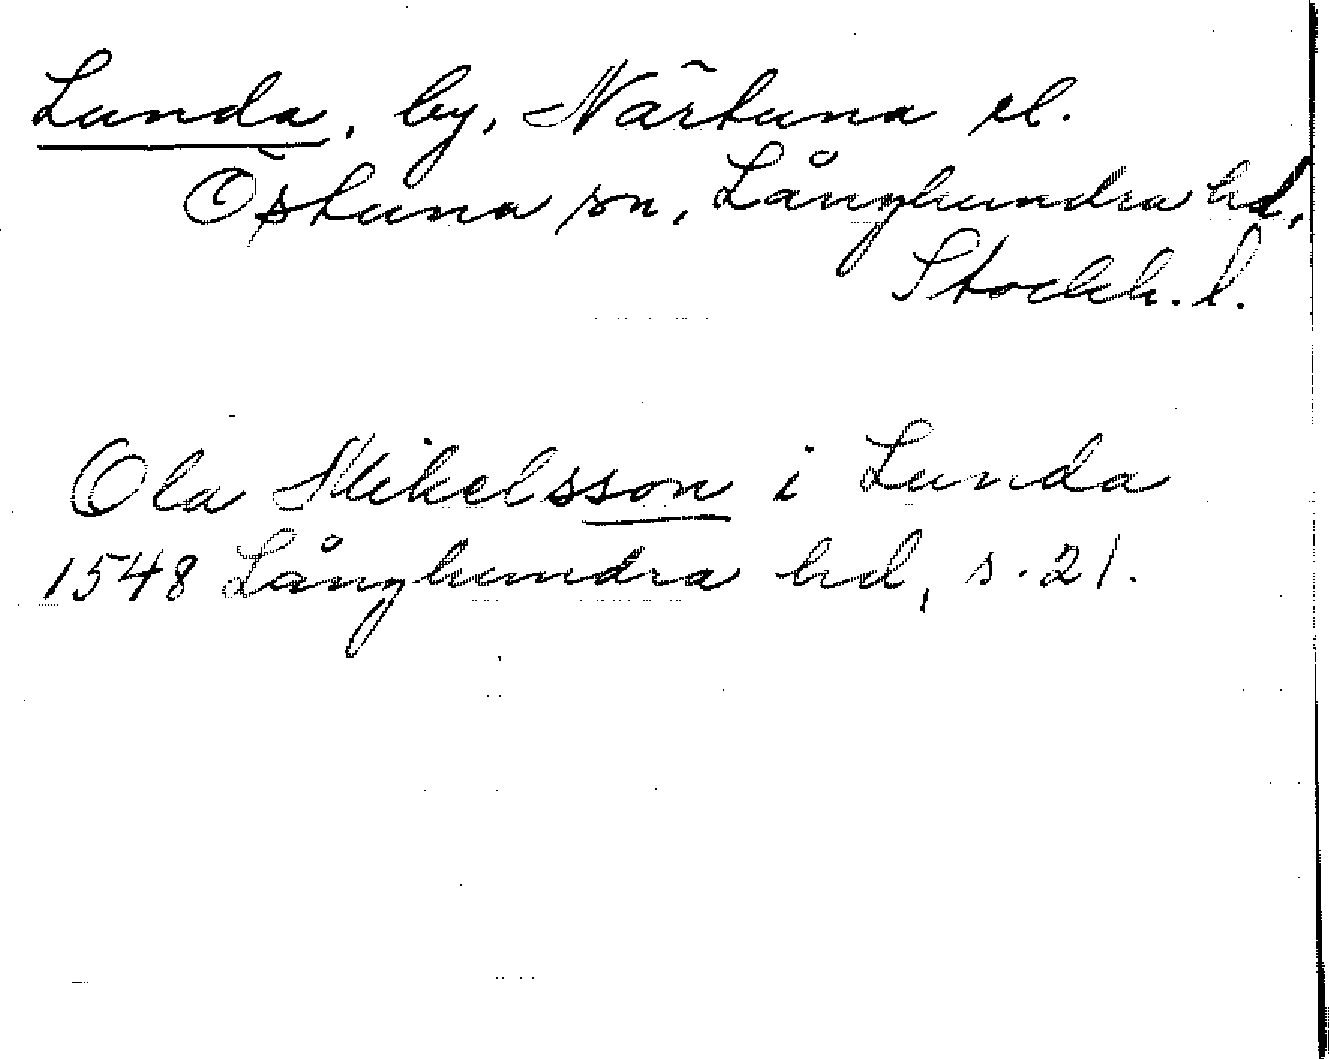 Lunda, by, Närtuna el.
Östuna sn, Långhundra hd,
Stockh. l.
Ola Mikelsson i Lunda
1548 Långhundra hd, s. 21.